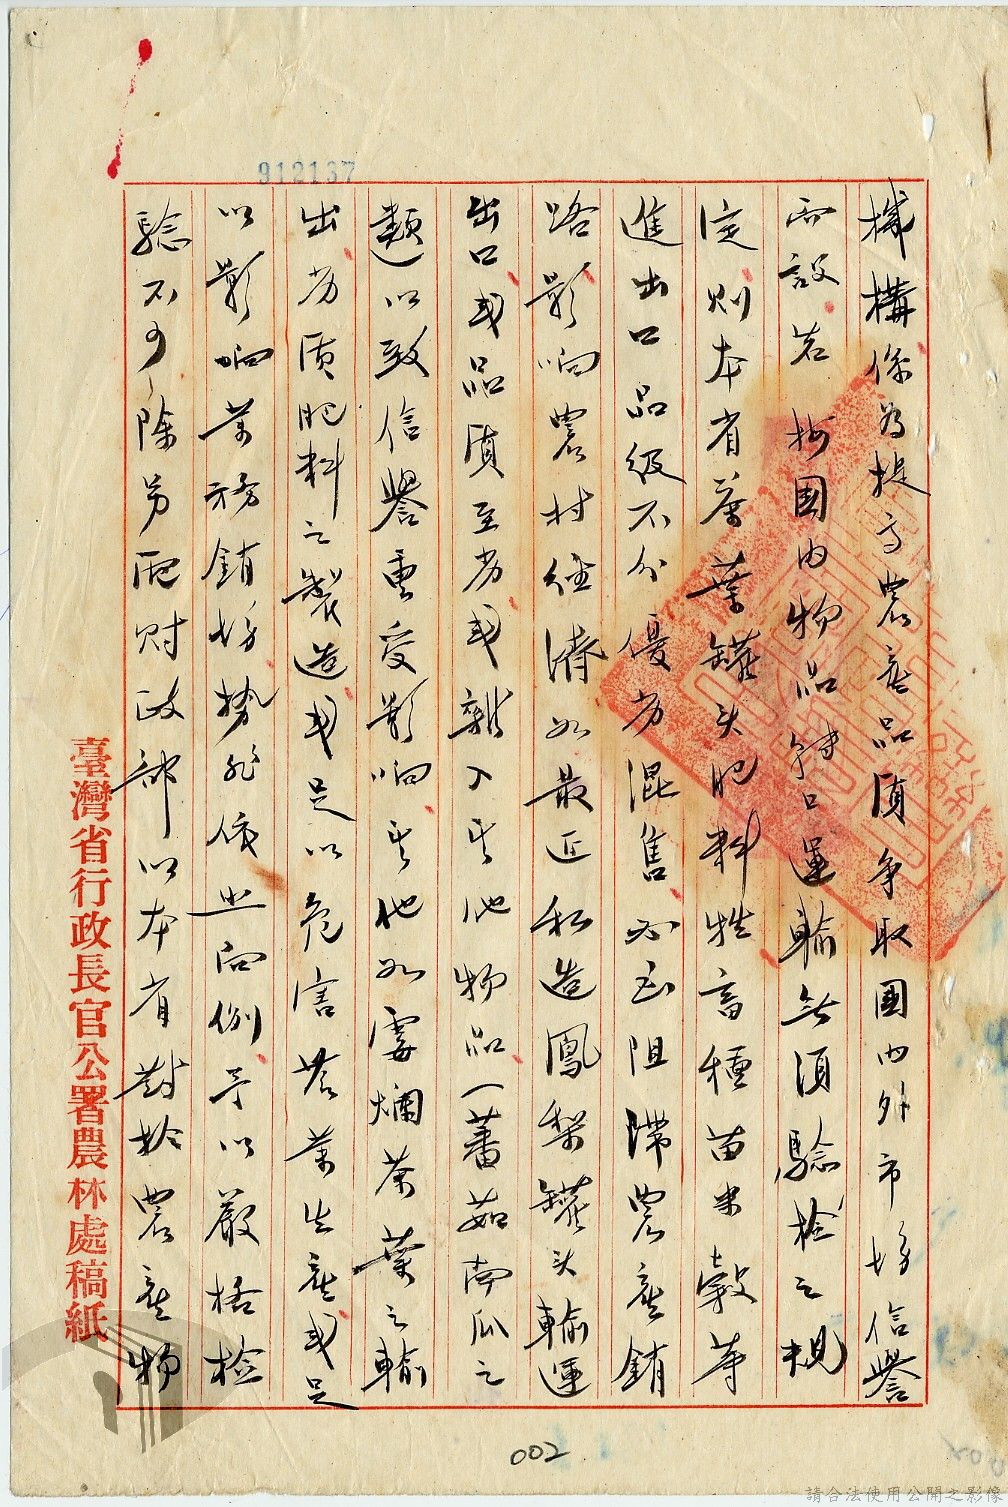 912137
機構係為提高農產品質爭取國內外市場信譽
而設若按國內物品轉口運輸無須驗檢之規
定則本省茶葉罐头肥料牲畜種苗米穀等
進出口品級不分優劣混售必至阻滯農產銷
路影响農村經濟如最近私造鳳梨罐头輸運
出口或品質至劣或雜入其他物品（蕃茄南瓜之
類以致信譽重受影响其他如霉爛茶葉之輸
出劣質肥料之製造或足以危害農業生產或足
以影响業務銷場勢非依照向例予以嚴格檢
驗不可除另函財政部以本省對於農產物
臺灣省行政長官公署農林處稿紙
002
請合法使用公開之影像